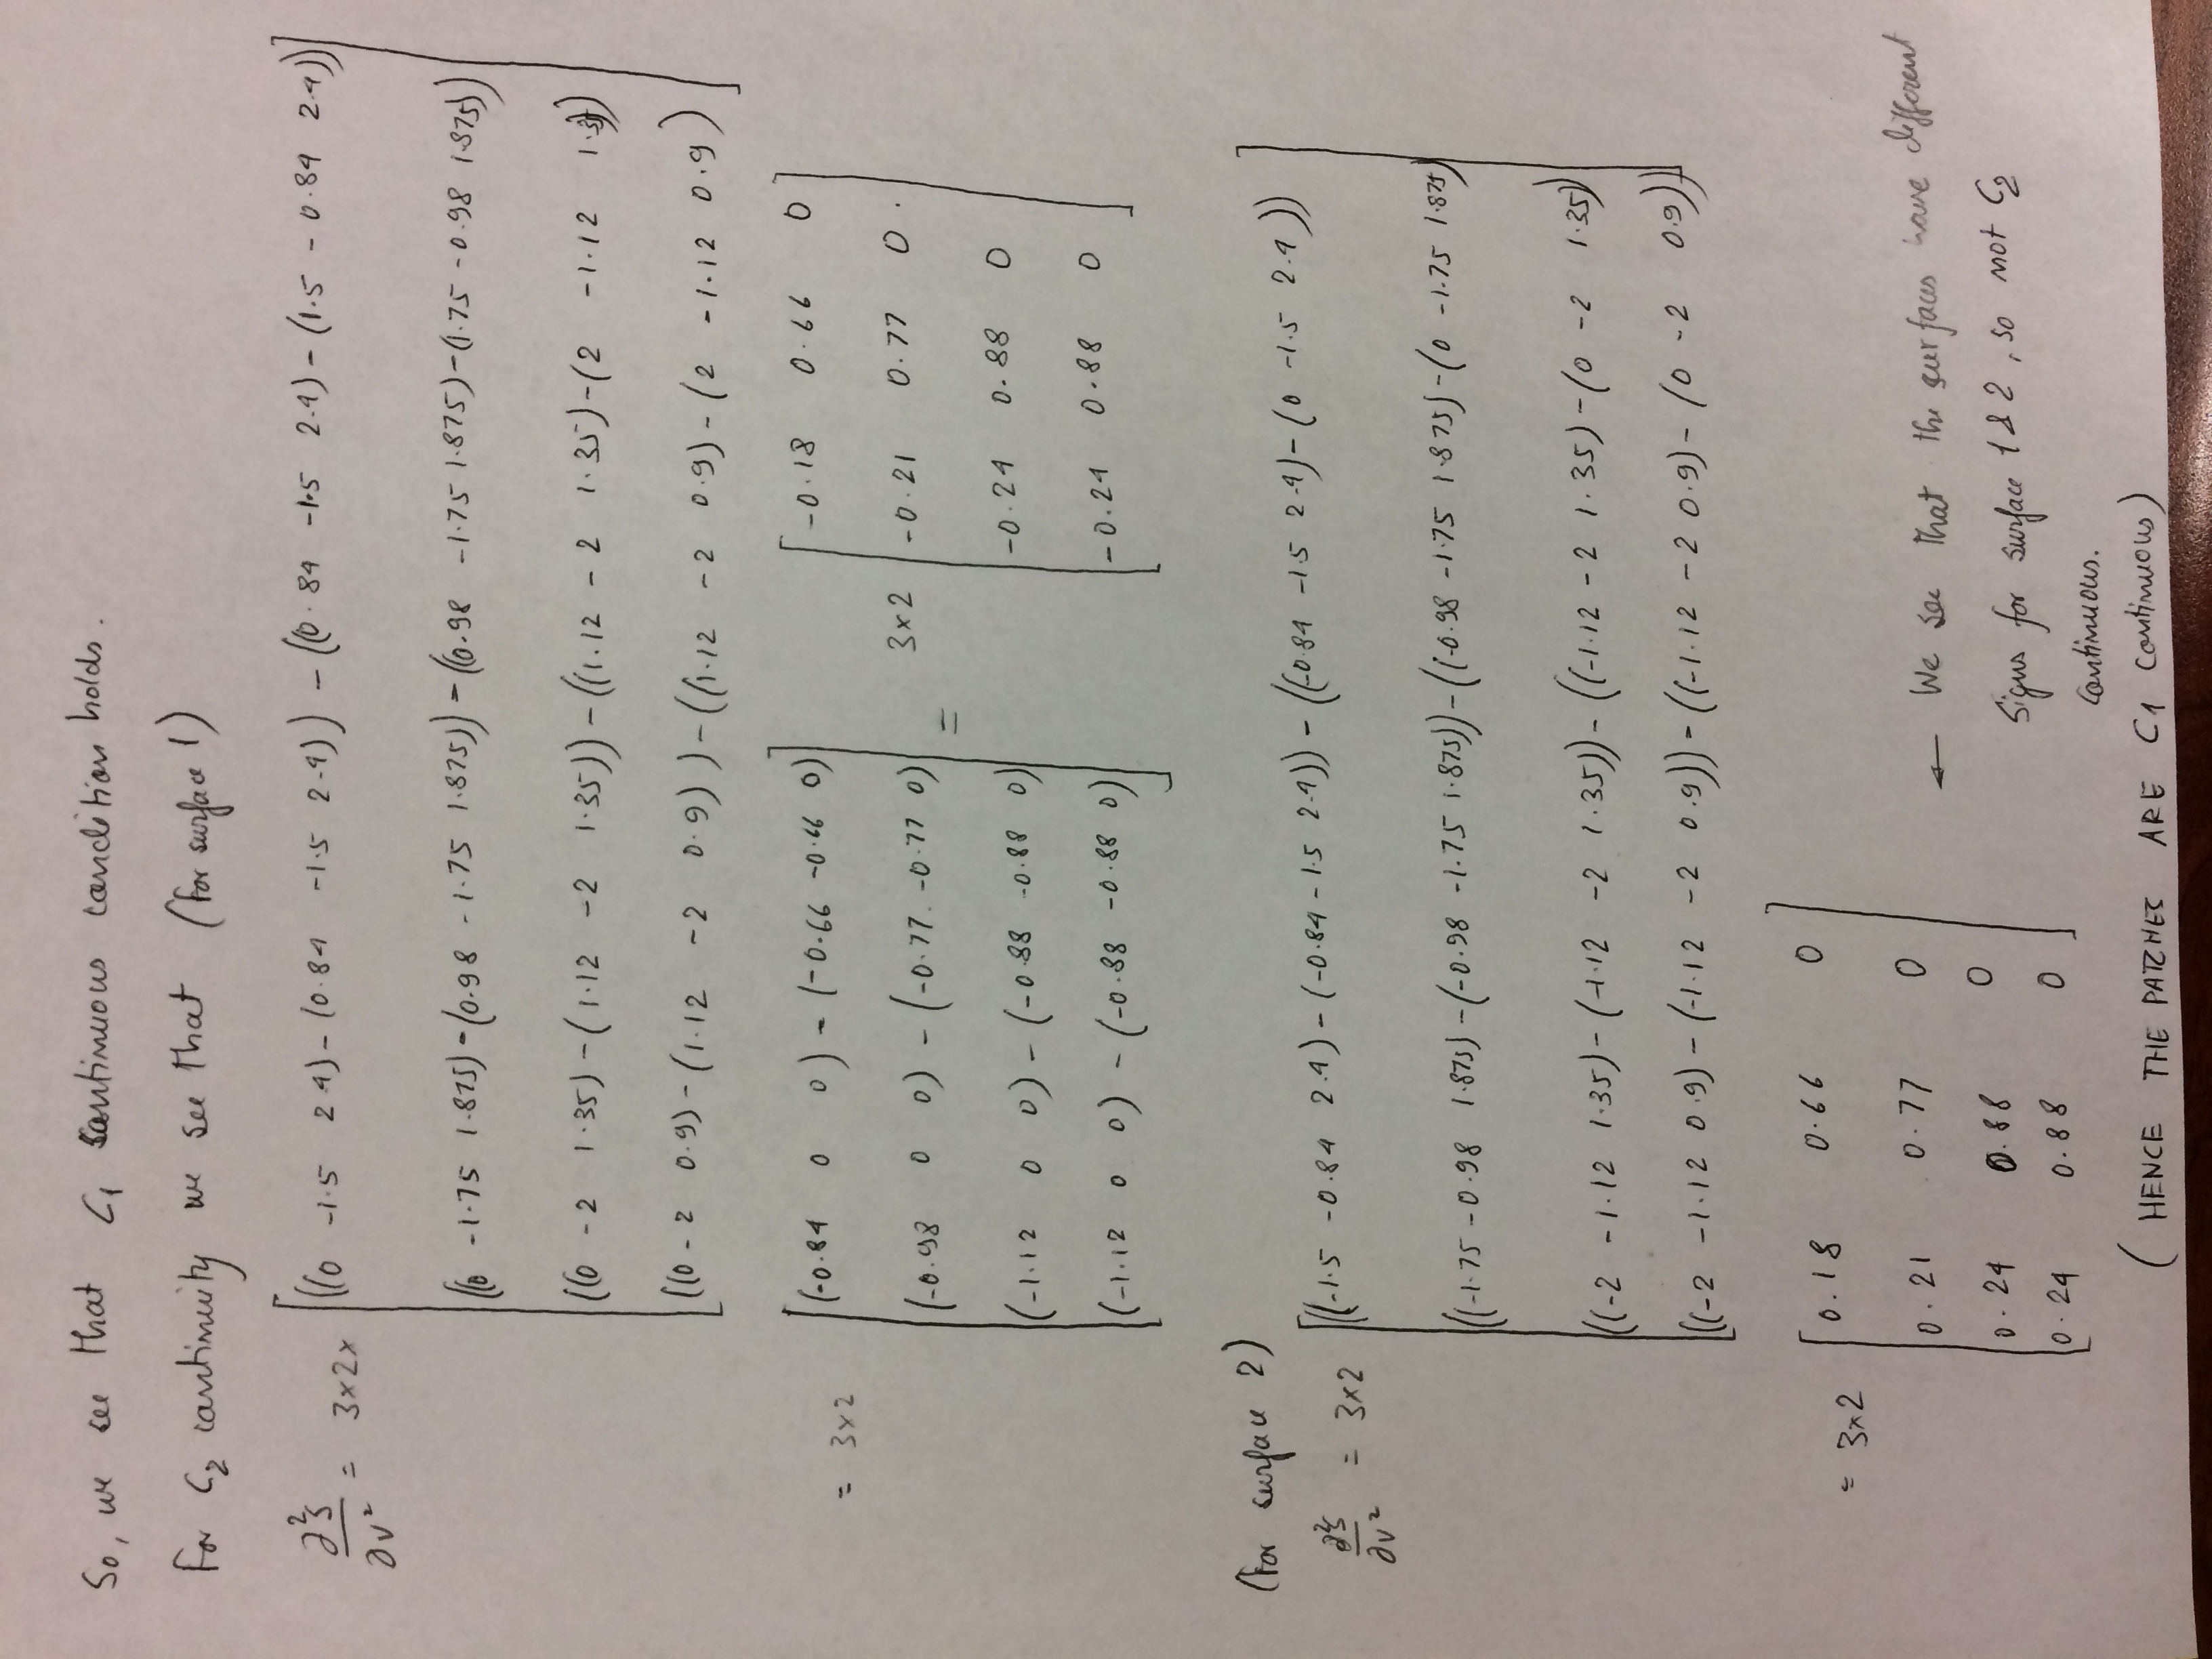 So, we see that C1 continuous condition holds.
For C2 continuity we see that (for surface 1)
∂²s/∂v² = 3x2x [((0 -1.5 2.4)-(0.84 -1.5 2.4)) - ((0.84 -1.5 2.4)-(1.5 -0.84 2.4))
((0 -1.75 1.875)-(0.98 -1.75 1.875)) - ((0.98 -1.75 1.875)-(1.75 -0.98 1.875))
((0 -2 1.35)-(1.12 -2 1.35)) - ((1.12 -2 1.35)-(2 -1.12 1.35))
((0 -2 0.9)-(1.12 -2 0.9)) - ((1.12 -2 0.9)-(2 -1.12 0.9)]
= 3x2 [(-0.84 0 0) - (-0.66 -0.66 0)
(-0.98 0 0) - (-0.77 -0.77 0)
(-1.12 0 0) - (-0.88 -0.88 0)
(-1.12 0 0) - (-0.88 -0.88 0)]
= 3x2 [-0.18 0.66 0
-0.21 0.77 0.
-0.24 0.88 0
-0.24 0.88 0]
(for surface 2)
∂²s/∂v² = 3x2 [((-1.5 -0.84 2.4)-(-0.84 -1.5 2.4)) - ((-0.84 -1.5 2.4)-(0 -1.5 2.4))
((-1.75 -0.98 1.875)-(-0.98 -1.75 1.875)) - ((-0.98 -1.75 1.875)-(0 -1.75 1.875)
((-2 -1.12 1.35)-(-1.12 -2 1.35)) - ((-1.12 -2 1.35)-(0 -2 1.35))
((-2 -1.12 0.9)-(-1.12 -2 0.9)) - ((-1.12 -2 0.9)-(0 -2 0.9))]
= 3x2 [0.18 0.66 0
0.21 0.77 0
0.24 0.88 0
0.24 0.88 0]
← We see that the surfaces have different
signs for surface 1 & 2, so not C2
continuous.
(HENCE THE PATCHES ARE C1 CONTINUOUS)